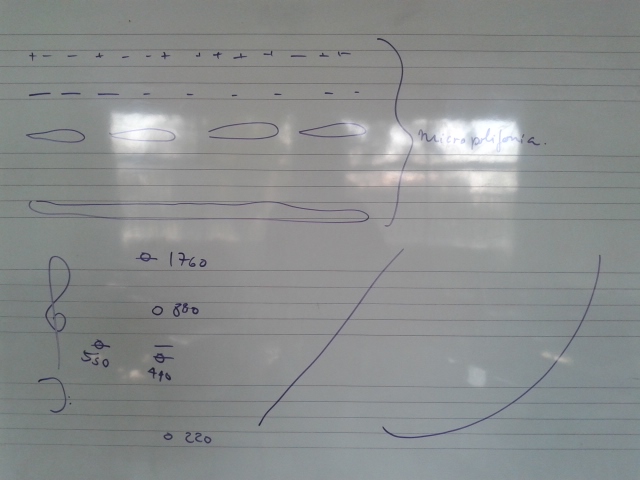 Micropolifonia.
1760
880
550
440
220